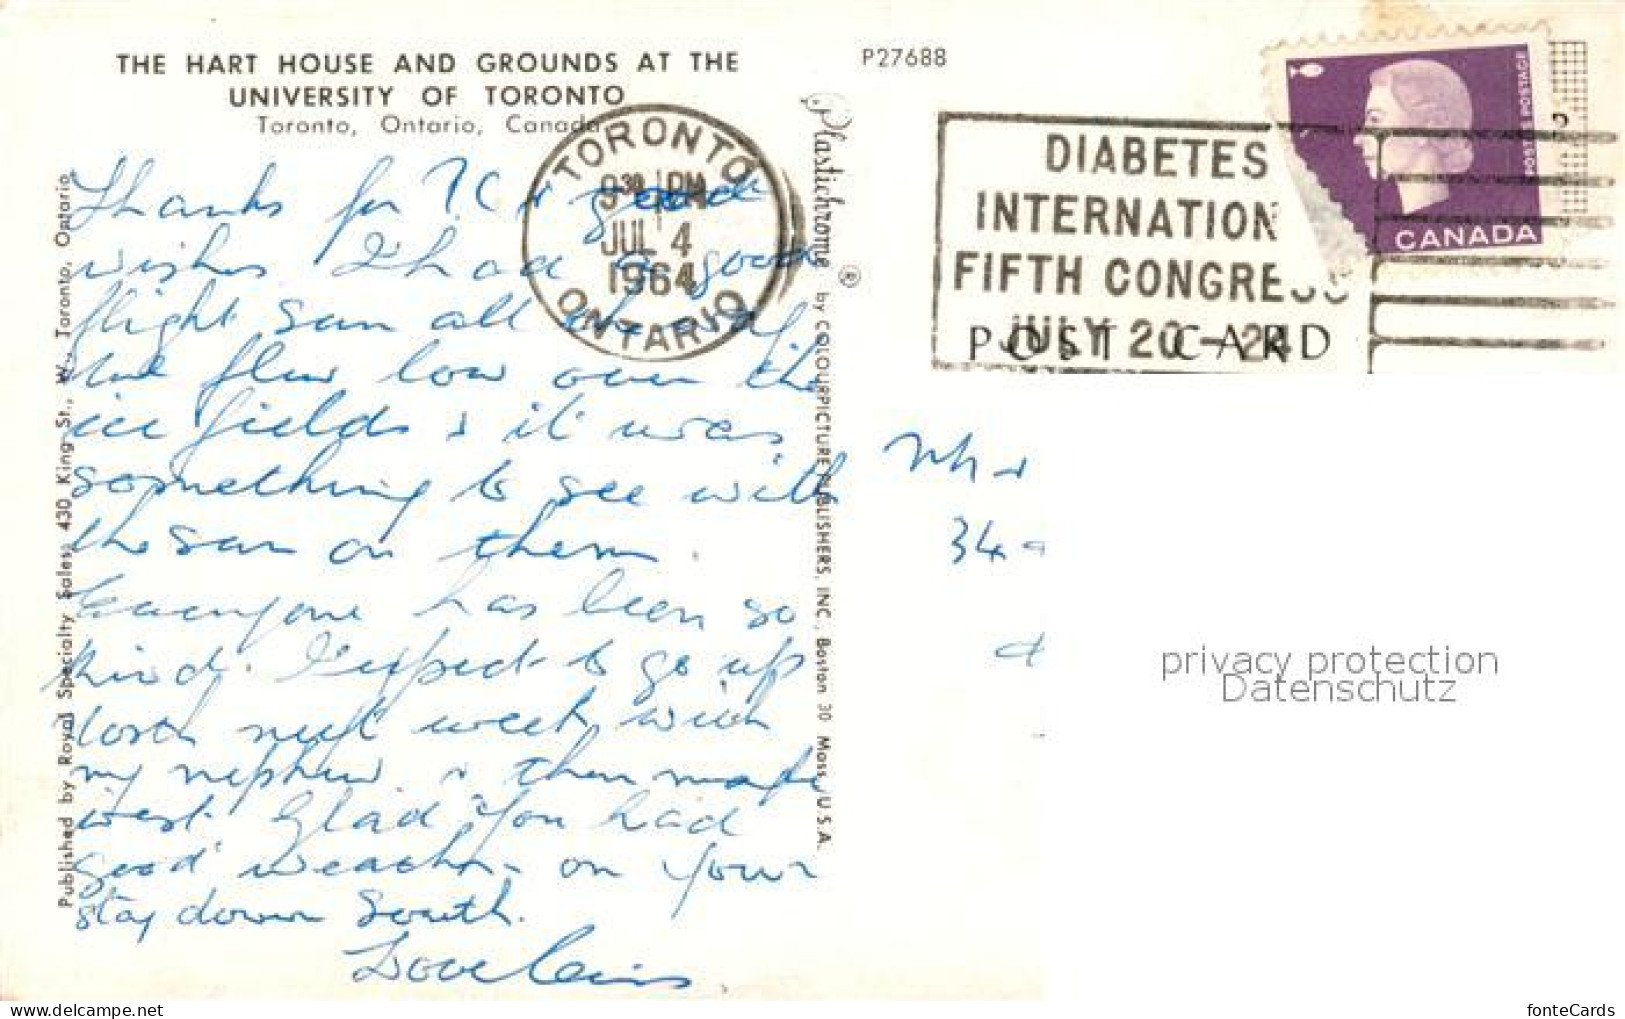 THE HART HOUSE AND GROUNDS AT THE
UNIVERSITY OF TORONTO
Toronto, Ontario, Canada
P27688
TORONTO
9 30 PM
JUL 4
1964
ONTARIO
DIABETES
INTERNATION
FIFTH CONGRESS
JULY 20 - 24
POST CARD
POSTES POSTAGE
CANADA
Thanks for & good
wishes I had a good
flight sun all the
flew low over the
ice fields & it was
something to see with
the sun on them.
Everyone has been so
kind. I expect to go up
North next week with
my nephew & then maybe
west. Glad you had
good weather on your
stay down South.
Love
34
Published by Royal Specialty Sales, 430 King St., W., Toronto, Ontario
Plastichrome ® by COLOURPICTURE PUBLISHERS, INC., Boston 30 Mass., U.S.A.
privacy protection
Datenschutz
www.delcampe.net
fonteCards